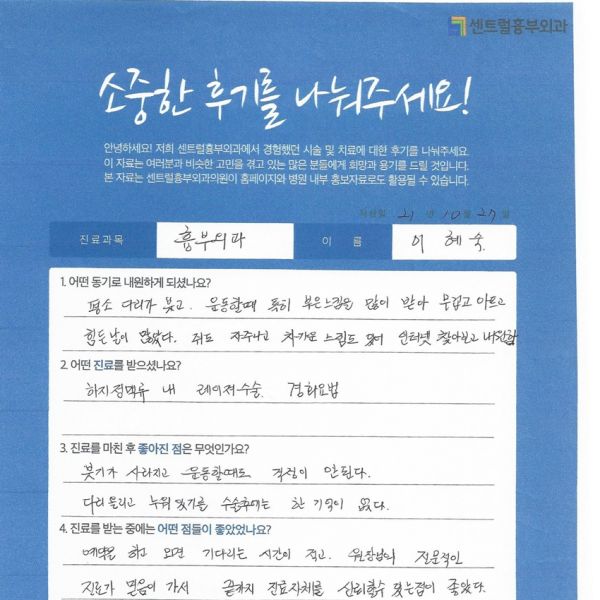 센트럴흉부외과
소중한 후기를 나눠주세요!
안녕하세요! 저희 센트럴흉부외과에서 경험했던 시술 및 치료에 대한 후기를 나눠주세요.
이 자료는 여러분과 비슷한 고민을 겪고 있는 많은 분들에게 희망과 용기를 드릴 것입니다.
본 자료는 센트럴흉부외과의원이 홈페이지와 병원 내부 홍보자료로도 활용될 수 있습니다.
작성일 21 년 10 월 27 일
진료과목 흉부외과 이 름 이 혜숙
1. 어떤 동기로 내원하게 되셨나요?
평소 다리가 붓고. 운동할때 특히 부은느낌을 많이 받아 무겁고 아프고
힘든날이 많았다. 쥐도 자주나고 차가운 느낌도 있어 인터넷 찾아보고 내원함
2. 어떤 진료를 받으셨나요?
하지정맥류 내 레이저수술. 경화요법
3. 진료를 마친 후 좋아진 점은 무엇인가요?
붓기가 사라지고 운동할때도 걱정이 안된다.
다리올리고 누워있기를 수술후에는 한 기억이 없다.
4. 진료를 받는 중에는 어떤 점들이 좋았었나요?
예약을 하고 오면 기다리는 시간이 적고. 원장님의 전문적인
진료가 믿음이 가서 끝까지 진료자체를 신뢰할수 있는점이 좋았다.